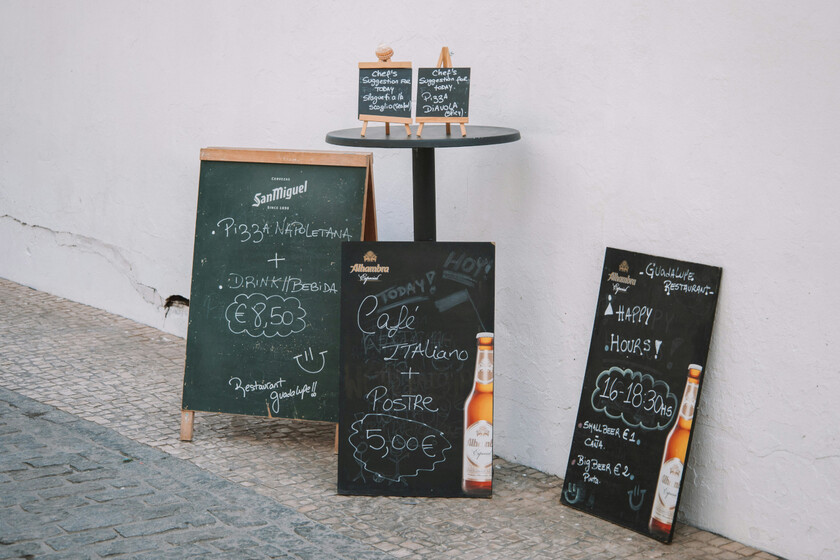 Chef's
Suggestion for
TODAY
scoglio(seafood)
Chef's
Suggestion for
TODAY.
Pizza
DIAVOLA
(SPICY).
CERVEZAS
SanMiguel
SINCE 1890
. Pizza Napoletana
+
. DRINK//BEBIDA
€8,50
Restaurant
guadalupe!!
Alhambra
Especial
TODAY!
HOY!
Café
ITaliano
+
Postre
5,00€
Alhambra
Especial
-Guadalupe
Restaurant-
HAPPY
HOURS!
16-18:30HS
• SMALL BEER €1.
CAÑA.
• BIG BEER €2.